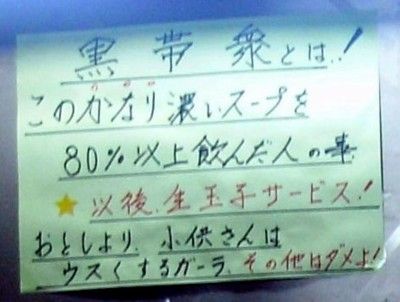 黒帯衆とは、!
このかなり濃いスープを
80%以上飲んだ人の事
★以後、生玉子サービス!
おとしより、小供さんは
ウスくするガーラ、その他はダメよ!